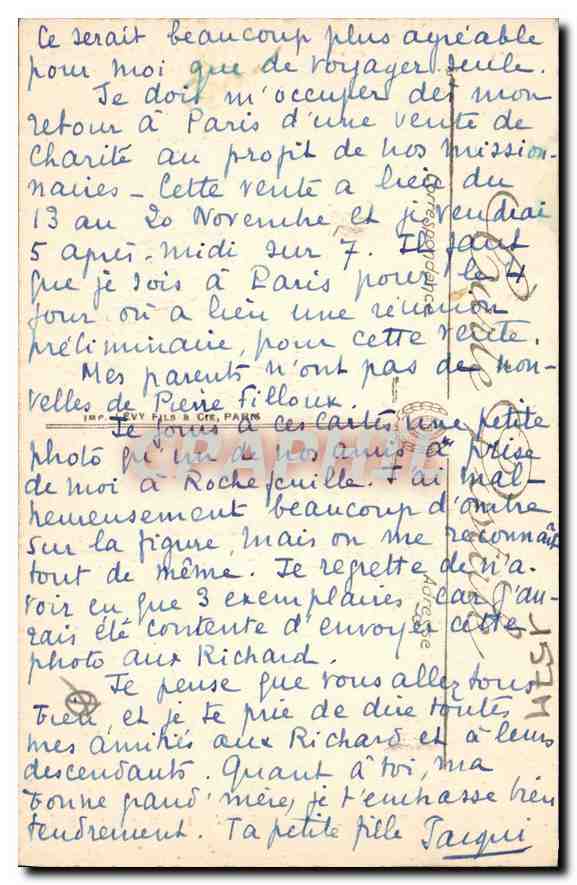 Ce serait beaucoup plus agréable
pour moi que de voyager seule.
Je dois m'occuper dès mon
retour à Paris d'une vente de
charité au profit de nos mission-
naires - Cette vente a lieu du
13 au 20 Novembre, et je vendrai
5 après-midi sur 7. Il faut
que je sois à Paris pour le 4
jour où a lieu une réunion
préliminaire, pour cette vente.
Mes parents n'ont pas de nou-
velles de Pierre Filloux.
IMP. LÉVY FILS & CIE, PARIS
Je joins à ces cartes une petite
photo qu'un de nos amis a prise
de moi à Rochejcuille. J'ai mal-
heureusement beaucoup d'ombre
sur la figure, mais on me reconnaît
tout de même. Je regrette de n'a-
voir eu que 3 exemplaires car j'au-
rais été contente d'envoyer cette
photo aux Richard.
Je pense que vous allez tous
bien et je te prie de dire toutes
mes amitiés aux Richard et à leurs
descendants. Quant à toi, ma
bonne grand'mère, je t'embrasse bien
tendrement. Ta petite fille Jacqui
Carte Postale
Correspondance
Adresse
1574
CPAPHIL